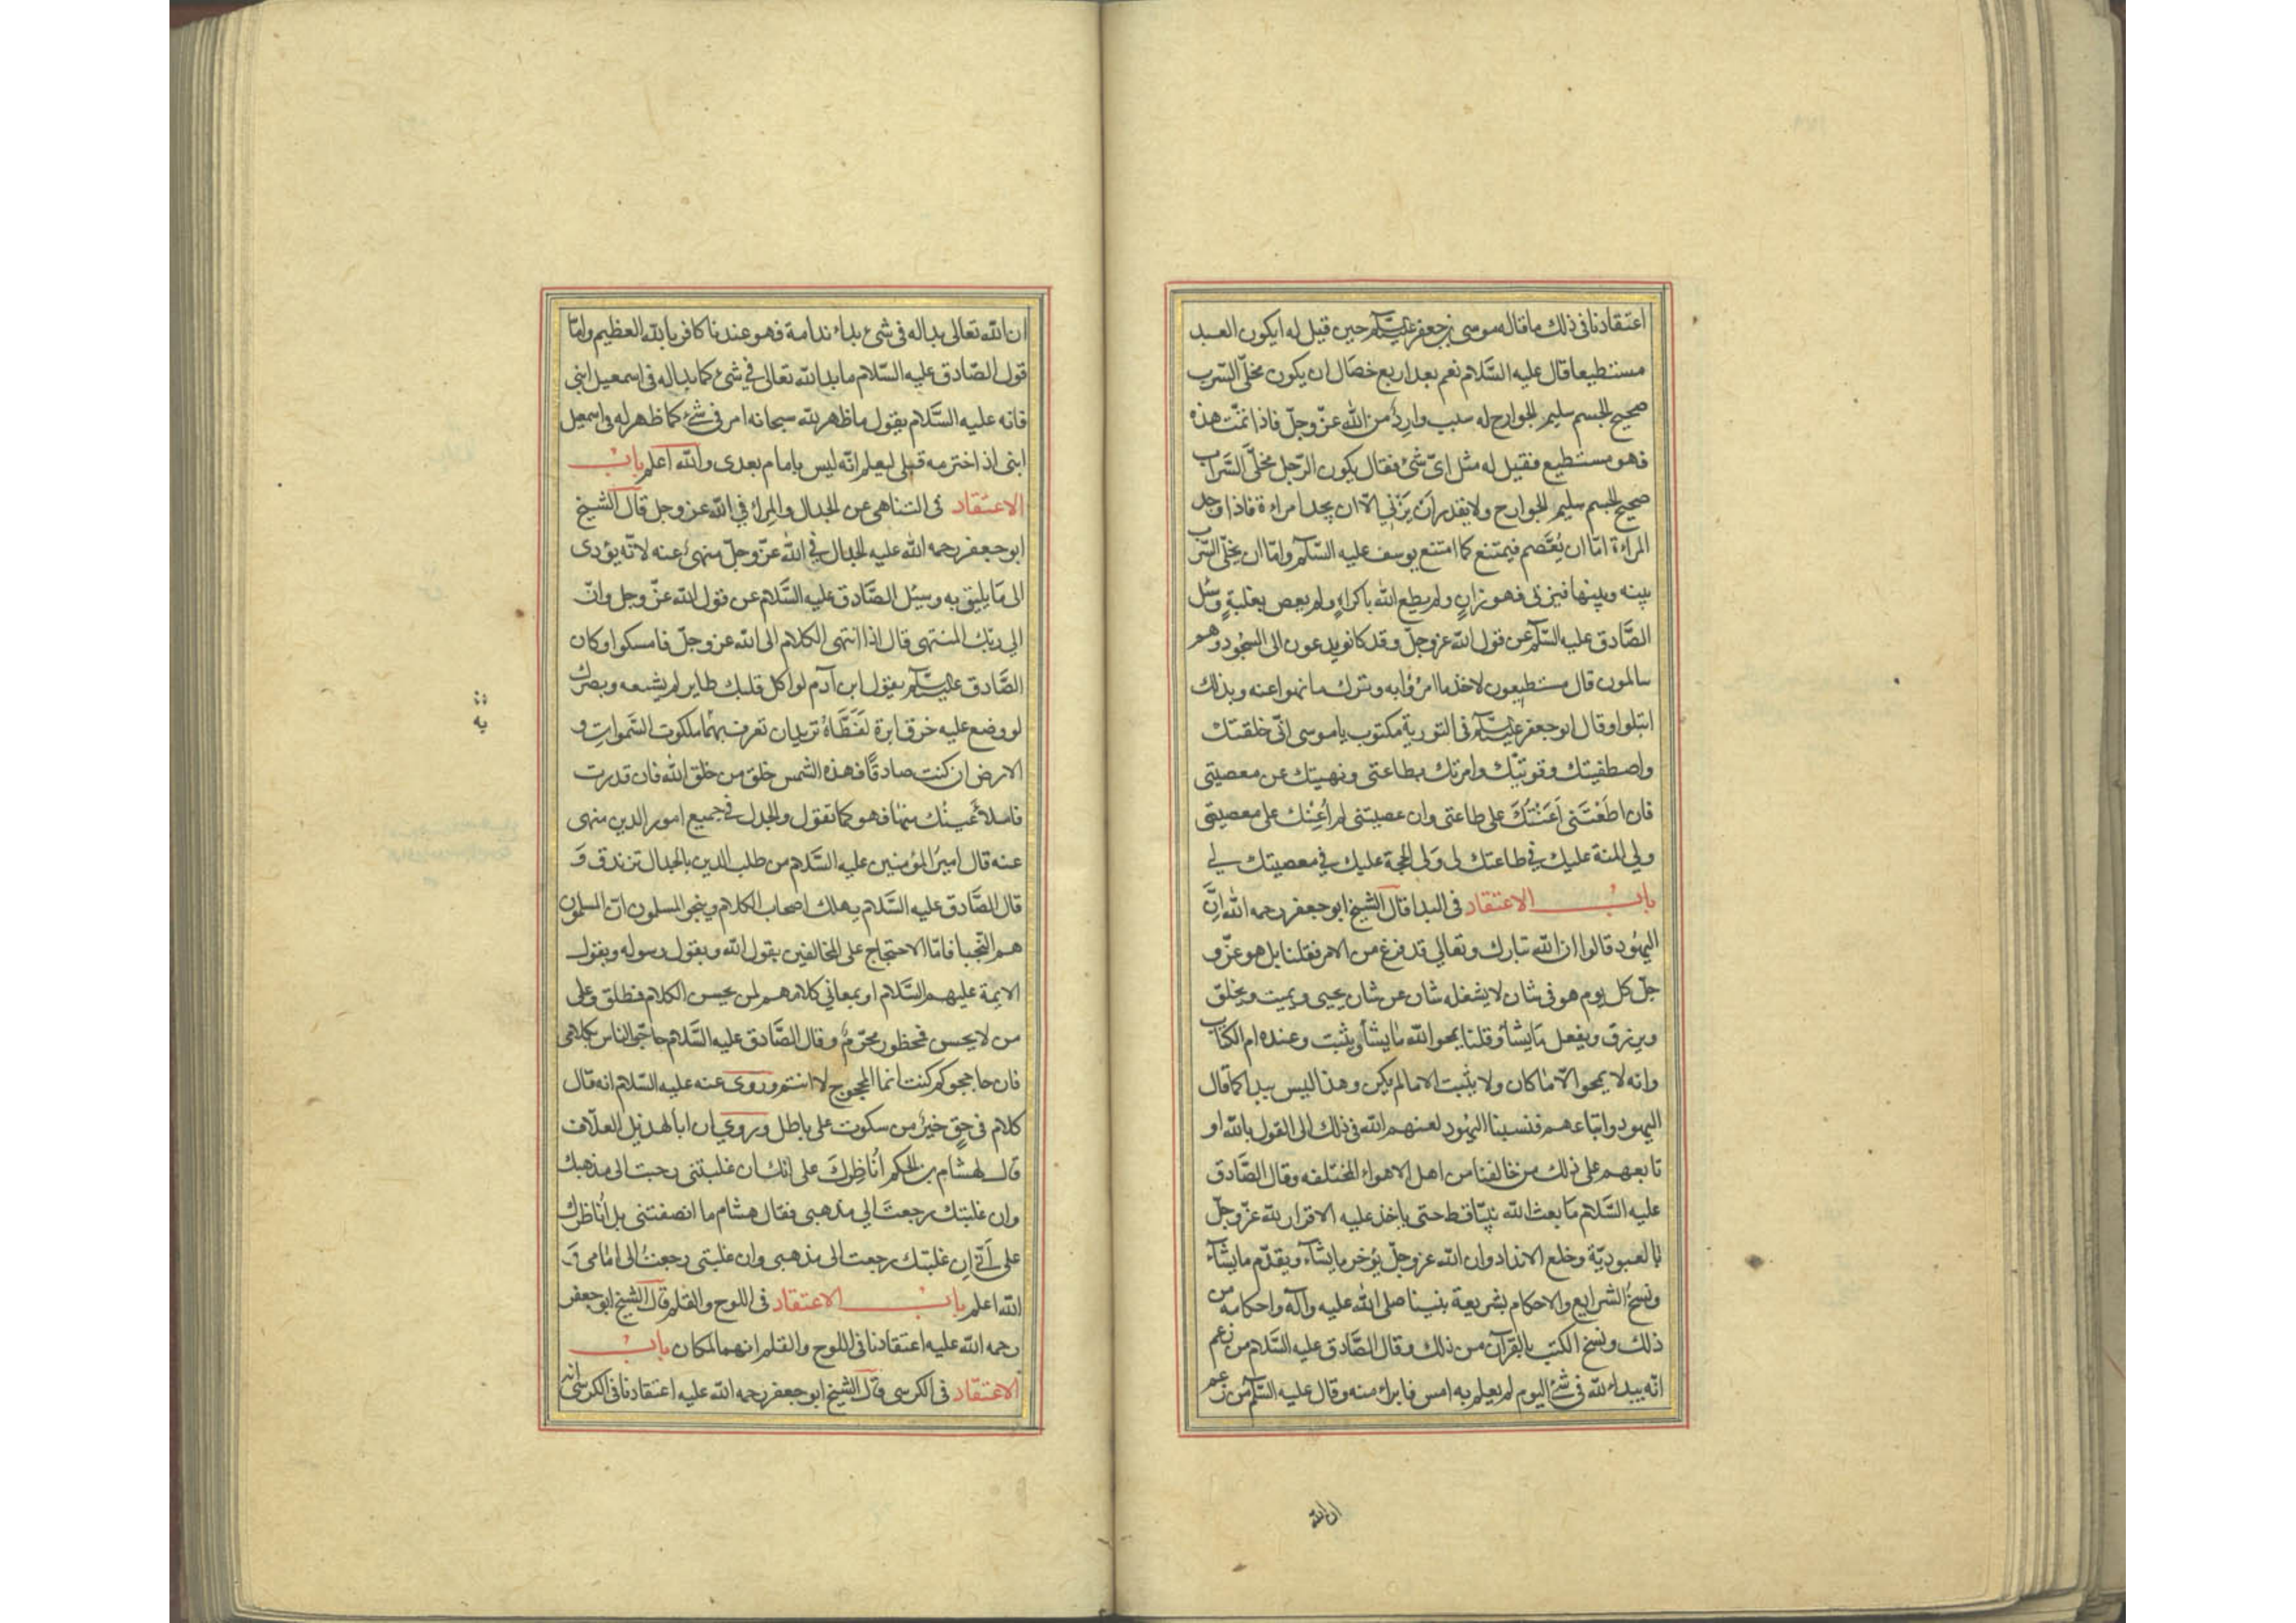 اعتقادنا فى ذلك ما قاله موسى بن جعفر عليه السلم حين قيل له ايكون العبد
مستطيعا قال عليه السَّلام نعم بعد اربع خصال ان يكون مخلّى السّرب
صحيح الجسم سليم الجوارح له سبب واردٌ من الله عزّ وجلّ فاذا تمّت هذه
فهو مستطيع فقيل له مثل اىّ شئ فقال يكون الرّجل مخلّى السَّراب
صحيح الجسم سليم الجوارح ولا يقدر اَن يَزْنِي الّا ان يجد امراءة فاذا وجد
المرآءة امّا ان يُعْتَصم فيمتنع كما امتنع يوسف عليه السّلم وامّا ان يخلّى السّرب
بينه وبينها فيزنى فهو زانٍ ولم يطع الله باكراهٍ ولم يعص بغلبةٍ وسُئل
الصَّادق عليه السّلم عن قول الله عزوجلّ وقد كانو يدعون الى السّجود وهم
سالمون قال مستطيعون لاخذ ما امرُوا به وبترك ما نهوا عنه وبذلك
ابتلوا وقال ابو جعفر عليه السّلم فى التورية مكتوب يا موسى انّى خلقتك
واصطفيتك وقويتّك وامرتك بطاعتى ونهيتك عن معصيتى
فان اطَعْتَنى اَعَنْتُكَ على طاعتى وان عصيتنى لم اُعِنْك على معصيتى
ولي المنة عليك في طاعتك لى وَلى الحجة عليك في معصيتك لي
بابُ الاعتقاد فى البدا قال الشيخ ابو جعفر رحمه الله اِنَّ
اليهُود قالوا ان الله تبارك وتعالي قد فرغ من الامر فقلنا بل هو عزّ و
جلّ كل يوم هو فى شان لا يشغله شان عن شان يحيى ويميت ويخلق
ويرزق ويفعل مَا يشآءُ وقلنا يمحو الله مٰا يشآء ويثبت وعنده ام الكتاب
وانه لا يمحو الّا ما كان ولا يثبت الا ما لم يكن وهذا ليس ببدا كما قال
اليهود واتباعهم فنسبنا اليهُود لعنهم الله فى ذلك الى القول بالله او
تابعهم على ذلك من خالفنا من اهل الاهواء المختلفه وقال الصَّادق
عليه السَّلام مَا بعث الله نبيّا قط حتى ياخذ عليه الاقرار لله عزّ وجلّ
بالعبوديّة وخلع الانداد وان الله عزوجلّ يؤخر ما يشآء ويقدّم ما يشآء
ونسخُ الشرايع والاحكام بشريعة نبينا صلى الله عليه وآله واحكامه من
ذلك ونسخ الكتب بالقرآن من ذلك وقال الصَّادق عليه السَّلام من زعم
انّه يبداء لله فى شئ اليوم لم يعلم به امس فابراء منه وقال عليه السّلم من زعم
ان الله
ان الله تعالى بدا له فى شئ بداء ندامة فهو عندنا كافر بالله العظيم وامّا
قول الصّادق عليه السّلام ما بدا لله تعالى في شئ كما بدا له فى اسمعيل ابنى
فانه عليه السَّلام يقول ما ظهر لله سبحانه امر فى شئ كما ظهر له فى اسمعيل
ابنى اذ اخترمه قبلى ليعلم انّه ليس بامام بعدى والله اعلم بابُ
الاعتقاد فى التناهى عن الجدال والمِراء في الله عز وجل قال الشيخ
ابو جعفر رحمه الله عليه الجدال في الله عزّ وجلّ منهىٌ عنه لانّه يؤدى
الى مَا يليق به وسئل الصَّادق عليه السَّلام عن قول الله عزّ وجل وانّ
الي ربّك المنتهى قال اذا انتهى الكلام الى الله عز وجلّ فامسكوا وكان
الصَّادق عليه السّلم يقول ابن آدم لو اكل قلبك طاير لم يشبعه وبصرك
لو وضع عليه خرق ابرة لَغَطَّاهُ تريد ان تعرف بهمٰا ملكوت السَّموات و
الارض ان كنت صادقًا فهذه الشمس خلق من خلق الله فان قدرت
فاملأ عَينك منهٰا فهو كما تقول والجدل في جميع امور الدين منهى
عنه قال اميرُ المؤمنين عليه السَّلام من طلب الدين بالجدال تزندق وَ
قال الصَّادق عليه السَّلام يهلك اصحاب الكلام وينجو المسلمون انّ المسلمون
هم النّجبا فامّا الاحتجاج على المخالفين بقول الله وبقول رسوله وبقول
الايمة عليهم السَّلام او بمعانى كلامهم لمن يحسن الكلام فطلق وعلى
من لا يحسن فمحظور محرّمٌ وقال الصَّادق عليه السَّلام حاجّوا الناس بكلامى
فان حاججوكم كنت انما المحجوج لا انتم وروى عنه عليه السّلام انه قال
كلام فى حقٍ خيرٌ من سكوت على باطل وروي ان ابا لهذيل العلّاف
قال لهشام بن الحكم اُناظِرُكَ على انك ان غلبتنى رجعت الى مذهبك
وان غلبتك رجعتَ الي مذهبى فقال هشام ما انصفتنى بل اُناظرك
على اَنّي اِن غلبتك رجعت الى مذهبى وان غلبتى رجعتُ الى امٰامى وَ
الله اعلم بابُ الاعتقاد فى اللوح والقلم قال الشيخ ابو جعفر
رحمه الله عليه اعتقادنا فى اللوح والقلم انهما لمكان بابُ
الاعتقاد فى الكرسى قال الشيخ ابو جعفر رحمه الله عليه اعتقادنا فى الكرسى انه